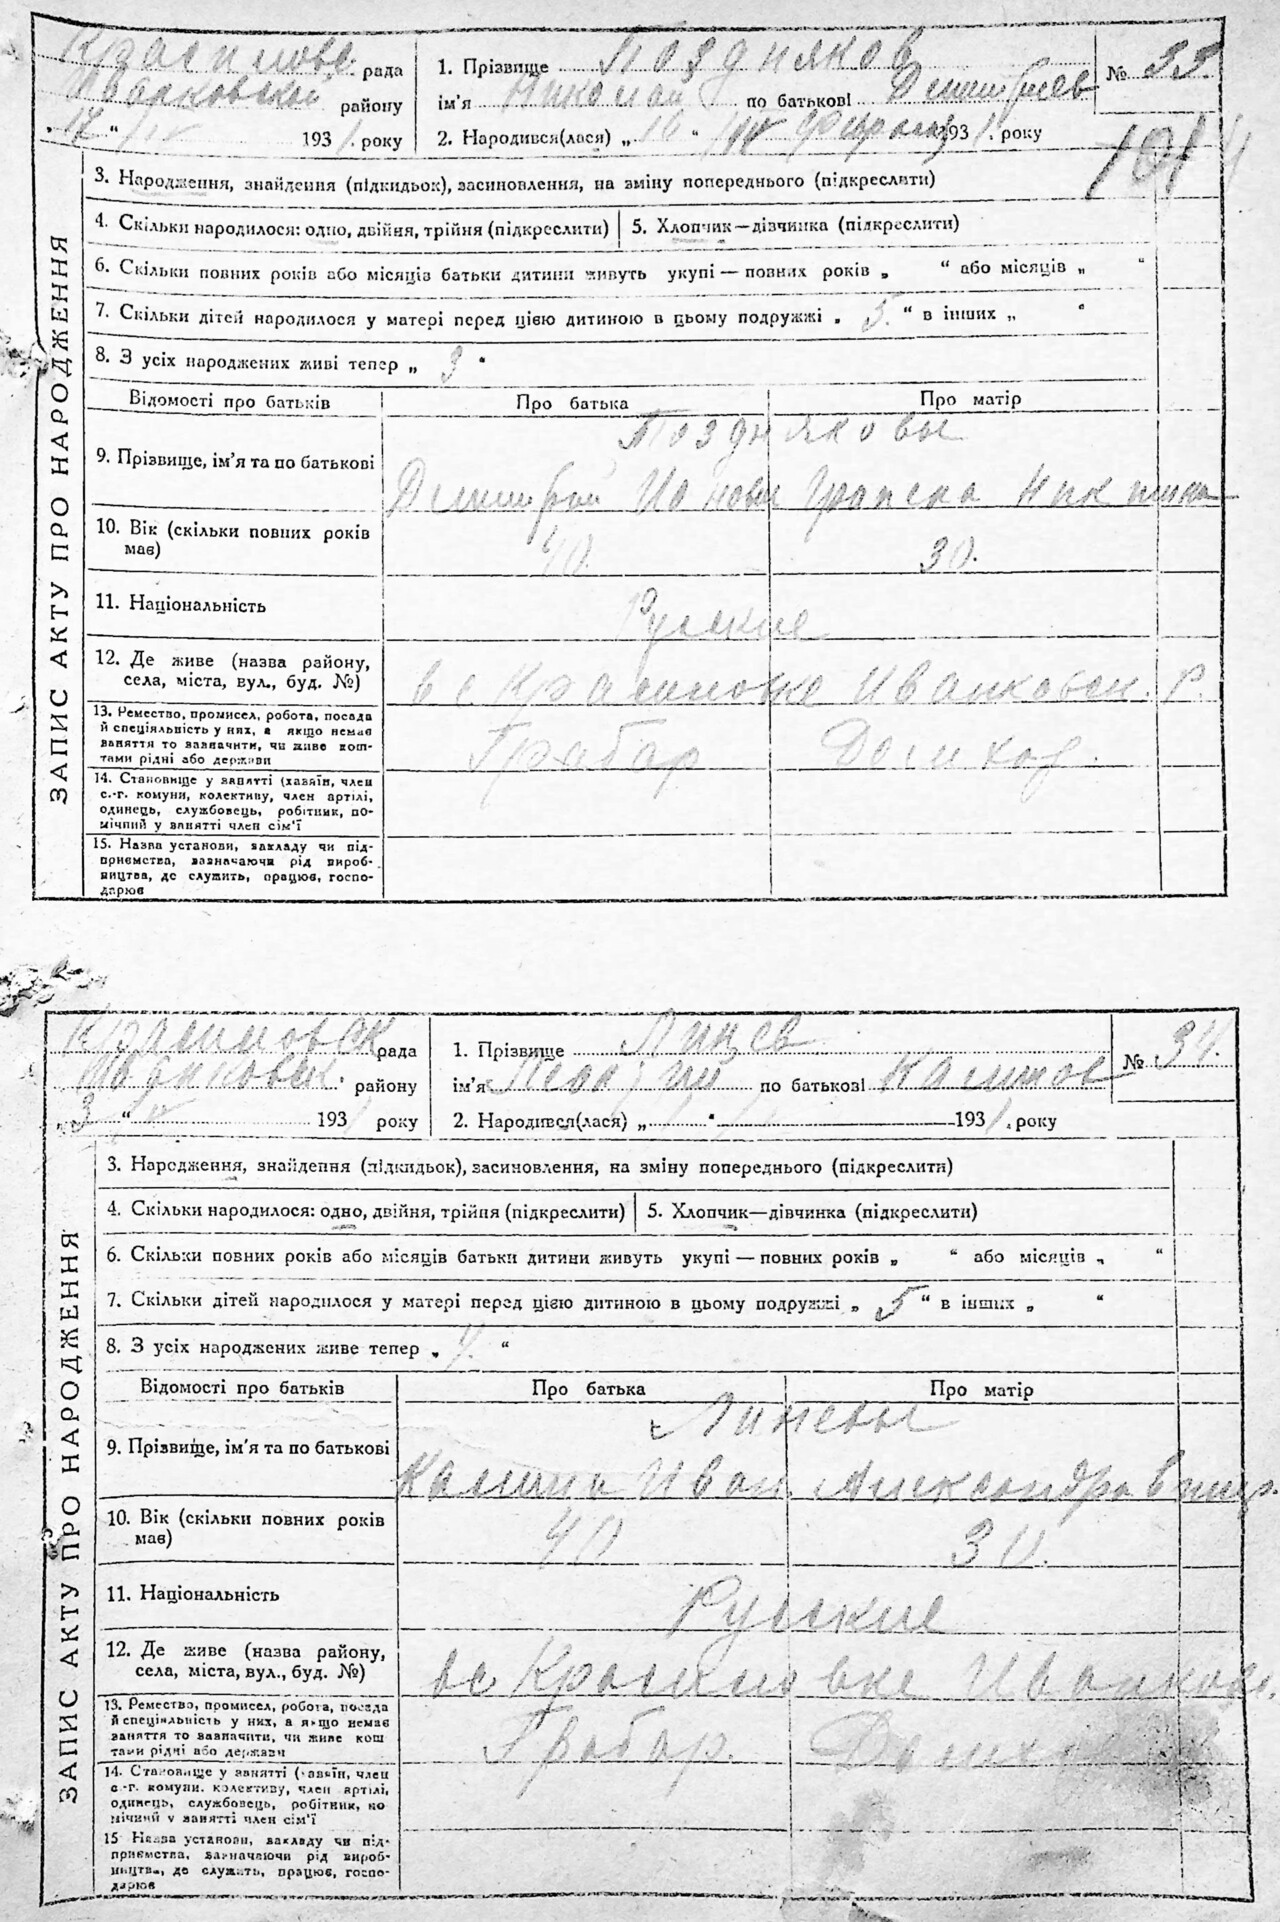 ЗАПИС АКТУ ПРО НАРОДЖЕННЯ
рада
району
193 1. року
1. Прізвище Поздняков
ім'я Николай по батькові Дмитриев
2. Народився(лася) „ 16 “ 1931. року
№ 35.
101
3. Народження, знайдення (підкидьок), засиновлення, на зміну попереднього (підкреслити)
4. Скільки народилося: одно, двійня, трійня (підкреслити) 5. Хлопчик—дівчинка (підкреслити)
6. Скільки повних років або місяців батьки дитини живуть укупі — повних років „ “ або місяців „ “
7. Скільки дітей народилося у матері перед цією дитиною в цьому подружжі „ 5. “ в інших „ “
8. З усіх народжених живі тепер „ 3 “
Відомості про батьків Про батька Про матір
Поздняковы
9. Прізвище, ім'я та по батькові
10. Вік (скільки повних років має) 40. 30.
11. Національність Русские
12. Де живе (назва району, села, міста, вул., буд. №) в с. Красиловке Иванковск. р.
13. Ремество, промисел, робота, посада й спеціяльність у них, а якщо немає заняття то зазначити, чи живе коштами рідні або держави Грабар Домихоз.
14. Становище у занятті (хазяїн, член с.-г. комуни, колективу, член артілі, одинець, службовець, робітник, помічний у занятті член сім'ї
15. Назва установи, закладу чи підприємства, зазначаючи рід виробництва, де служить, працює, господарює
ЗАПИС АКТУ ПРО НАРОДЖЕННЯ
рада
Иванковск. району
„ 3 “ 1931 року
1. Прізвище Линев
ім'я по батькові
2. Народився(лася) „ “ 1931. року
№ 34.
3. Народження, знайдення (підкидьок), засиновлення, на зміну попереднього (підкреслити)
4. Скільки народилося: одно, двійня, трійня (підкреслити) 5. Хлопчик—дівчинка (підкреслити)
6. Скільки повних років або місяців батьки дитини живуть укупі — повних років „ “ або місяців „ “
7. Скільки дітей народилося у матері перед цією дитиною в цьому подружжі „ 5 “ в інших „ “
8. З усіх народжених живе тепер „ 4. “
Відомості про батьків Про батька Про матір
Линевы
9. Прізвище, ім'я та по батькові Иван Александра
10. Вік (скільки повних років має) 40 30.
11. Національність Русские
12. Де живе (назва району, села, міста, вул., буд. №) в с Красиловке Иванков.
13. Ремество, промисел, робота, посада й спеціяльність у них, а якщо немає заняття то зазначити, чи живе коштами рідні або держави Грабар.
14. Становище у занятті (хазяїн, член с.-г. комуни, колективу, член артілі, одинець, службовець, робітник, помічний у занятті член сім'ї
15 Назва установи, закладу чи підприємства, зазначаючи рід виробництва, де служить, працює, господарює